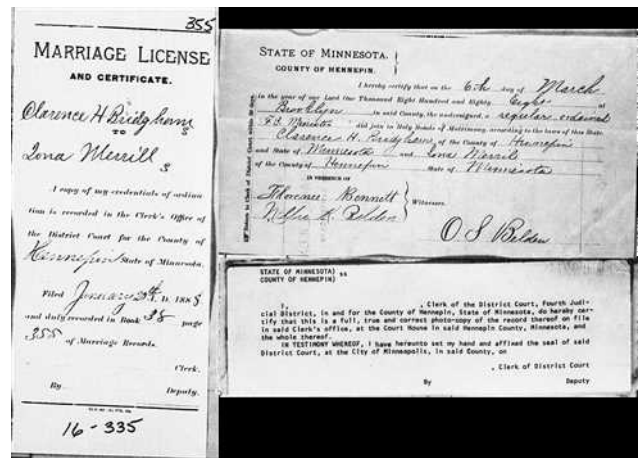 355
MARRIAGE LICENSE
AND CERTIFICATE.
Clarence H Bridgham
TO
Iona Merrill
A copy of my credentials of ordina
tion is recorded in the Clerk's Office of
the District Court for the County of
Hennepin State of Minnesota.
Filed January A. D. 1888
and duly recorded in Book 38 page
355 of Marriage Records.
Clerk.
By Deputy.
16-335
STATE OF MINNESOTA.
COUNTY OF HENNEPIN.
I hereby certify that on the 6th day of March
in the year of our Lord One Thousand Eight Hundred and Eighty Eight at
Brooklyn in said County, the undersigned, a regular ordained
did join in Holy Bonds of Matrimony, according to the laws of this State,
Clarence H. Bridgham of the County of Hennepin
and State of Minnesota and Iona Merrill
of the County of Hennepin State of Minnesota
IN PRESENCE OF
Florence Bennett
Belden
Witnesses.
O. S Belden
STATE OF MINNESOTA) ss
COUNTY OF HENNEPIN)
I, , Clerk of the District Court, Fourth Judi-
cial District, in and for the County of Hennepin, State of Minnesota, do hereby cer-
tify that this is a full, true and correct photo-copy of the record thereof on file
in said Clerk's office, at the Court House in said Hennepin County, Minnesota, and
the whole thereof.
IN TESTIMONY WHEREOF, I have hereunto set my hand and affixed the seal of said
District Court, at the City of Minneapolis, in said County, on
, Clerk of District Court
By Deputy